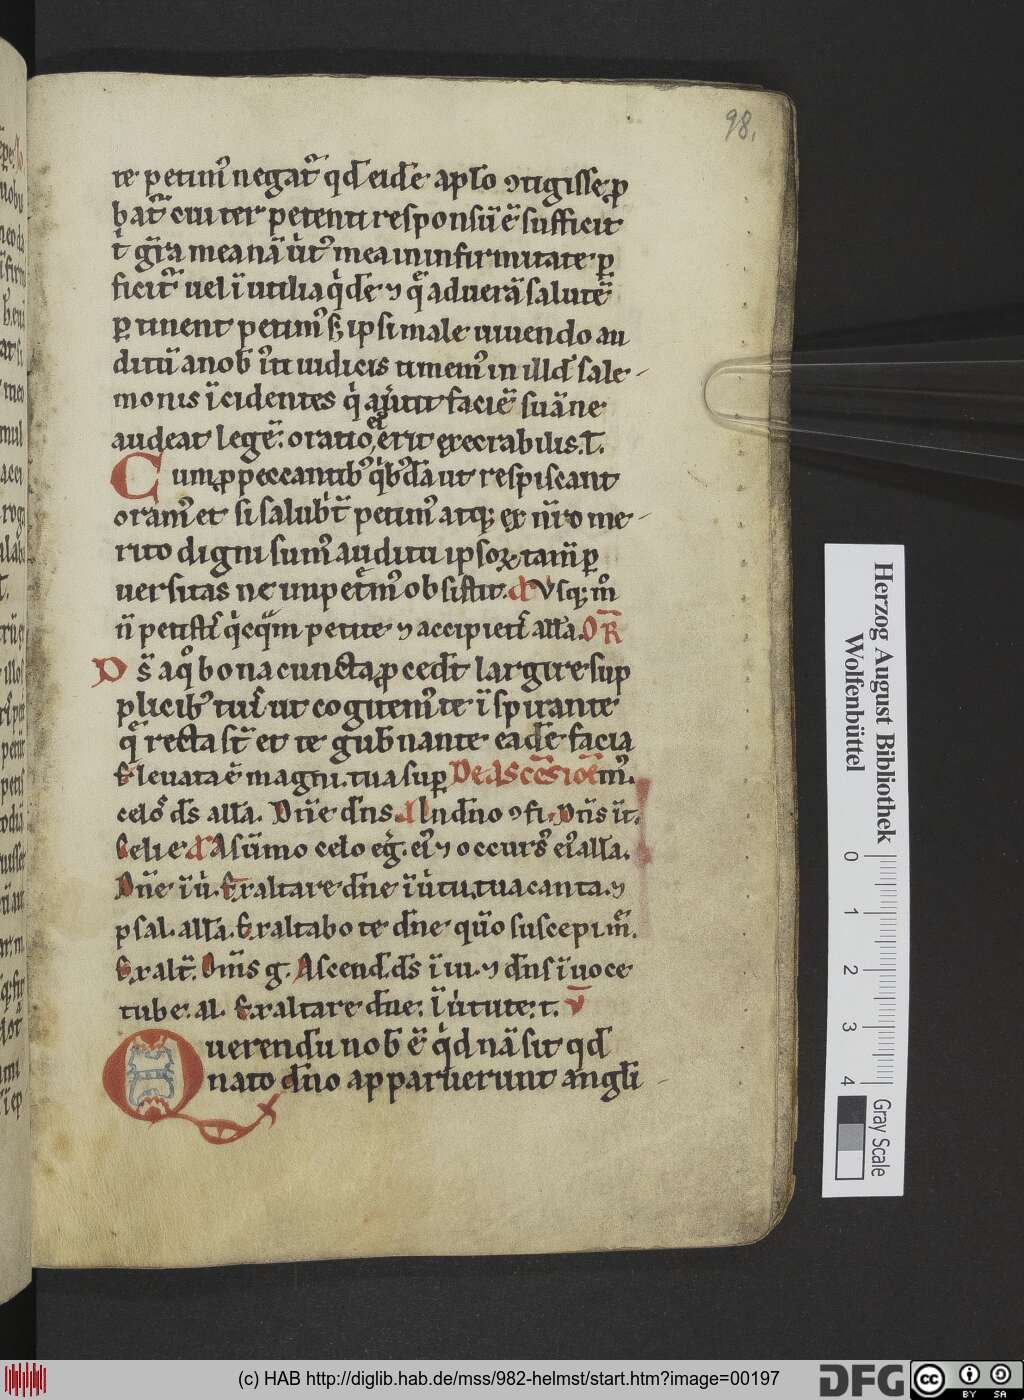 98.
te petim᷒ negat᷑ qđ eidē aplo ↄtigisse ꝓ
bat᷑ cui ter petenti responsū ē sufficit
t͛ gr̄a mea nā v͛t᷒ mea in infirmitate ꝑ
ficit᷑ uel ī utilia q̇dē ⁊ q̄ ad uerā salutē
ꝑtinent petim᷒ s; ipsi male uiuendo au
ditū a nob̄ īti iudicis timem᷒ in illđ sale-
monis īcidentes q̇ a᷑utit faciē suā ne
audeat legē. oratio ei᷒ erit execrabilis. t.
Cum ꝓ peccantib᷒ q̇b᷒dā ut respiscant
oram᷒ et si salubt̄ petim᷒ atq; ex nr̄o me-
rito digni sum᷒ auditu ipsoꝝ tam̄ ꝑ
uersitas ne impetm᷒ obsistit. Vsq; m͛
n̄ petist͛ q̇cq̄m petite ⁊ accipiet͛ alla. OR
Ds̄ a q͛ bona cuncta ꝓcedt̄ largire sup
plicib᷒ tui͛ ut cogitem᷒ te īspirante
q̄ recta st̄ et te gub̄nante eadē facia
Eleuata ē magni. tua suꝑ De Ascēsiōe m᷒.
celos̄ ds̄ alla. Dn̄e dn̄s. In dn̄o ↄfi. Dn̄s īt.
Celi e. Asūmo celo eg͛. ei᷒ ⁊ occurs᷒ ei᷒ alla.
Dn̄e ī v͛. Exaltare dn̄e ī v͛tu. tua canta. ⁊
psal. alla. Exaltabo te dn̄e qūo suscepi. m̄.
Exalt̄. Om̄s g. Ascend. ds̄ ī iu. ⁊ dn̄s ī uoce
tube. al. Exaltare dn̄e. ī v͛tute. t. V
Querendū nob̄ ē q̇d nā sit qđ
nato dn̄o apparuerunt angli-
Herzog August Bibliothek
Wolfenbüttel
0 1 2 3 4 Gray Scale
(c) HAB http://diglib.hab.de/mss/982-helmst/start.htm?image=00197
DFG
cc BY SA